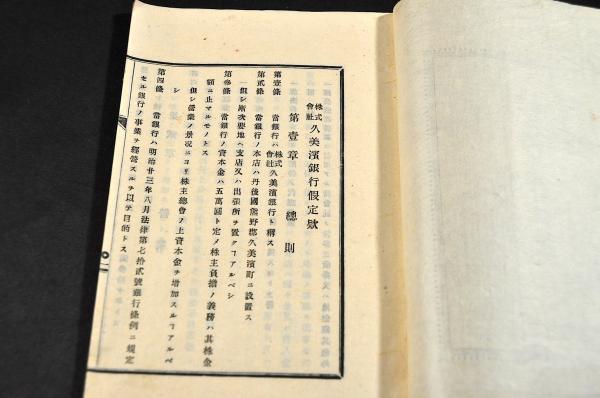 株式會社久美濱銀行假定欵
第壹章 總則
第壹條 當銀行ハ株式會社久美濱銀行ト稱ス
第貳條 當銀行ノ本店ハ丹後國熊野郡久美濱町ニ設置ス
但シ漸次要地ヘ支店又ハ出張所ヲ置クヿアルベシ
第參條 當銀行ノ資本金ハ五萬圓ト定メ株主負擔ノ義務ハ其株金
額ニ止マルモノトス
但シ營業ノ景况ニヨリ株主總會ノ上資本金ヲ增加スルヿアルベ
シ
第四條 當銀行ハ明治廿三年八月法律第七拾貳號銀行條例ニ規定
セル銀行ノ事業ヲ經營スルヲ以テ目的トス